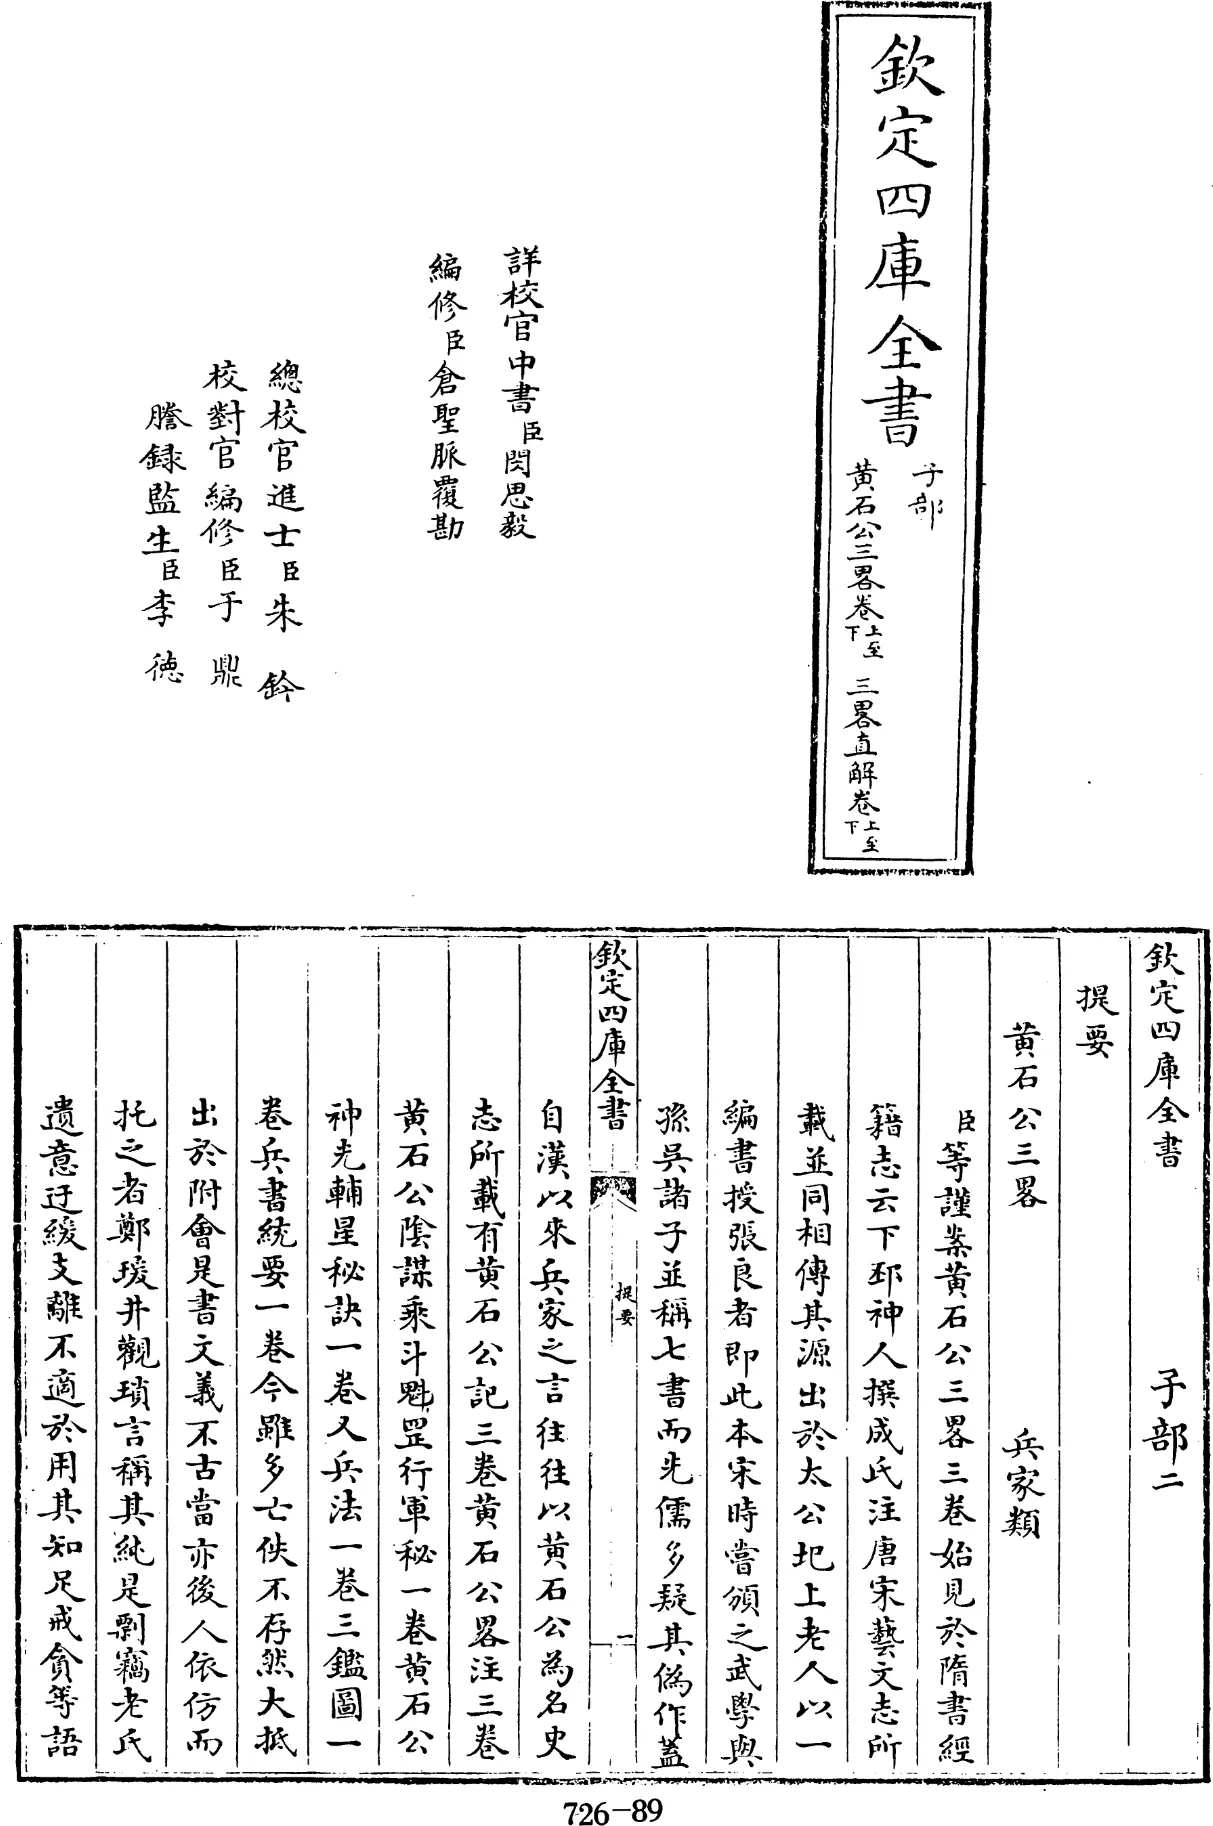 欽定四庫全書
子部
黄石公三畧卷上至下 三畧直解卷上至下
詳校官中書臣閔思毅
編修臣倉聖脈覆勘
總校官進士臣朱鈐
校對官編修臣于鼎
謄録監生臣李德
欽定四庫全書 子部二
提要
黄石公三畧 兵家類
臣等謹案黄石公三畧三卷始見於隋書經
籍志云下邳神人撰成氏注唐宋藝文志所
載並同相傳其源出於太公圯上老人以一
編書授張良者即此本宋時嘗頒之武學與
孫吴諸子並稱七書而先儒多疑其偽作蓋
欽定四庫全書 提要 一
自漢以來兵家之言往往以黄石公為名史
志所載有黄石公記三卷黄石公畧注三卷
黄石公隂謀乘斗魁罡行軍秘一卷黄石公
神光輔星秘訣一卷又兵法一卷三鑑圖一
卷兵書統要一卷今雖多亡佚不存然大抵
出於附會是書文義不古當亦後人依仿而
托之者鄭瑗井觀瑣言稱其純是剽竊老氏
遺意迂緩支離不適於用其知足戒貪等語
726-89